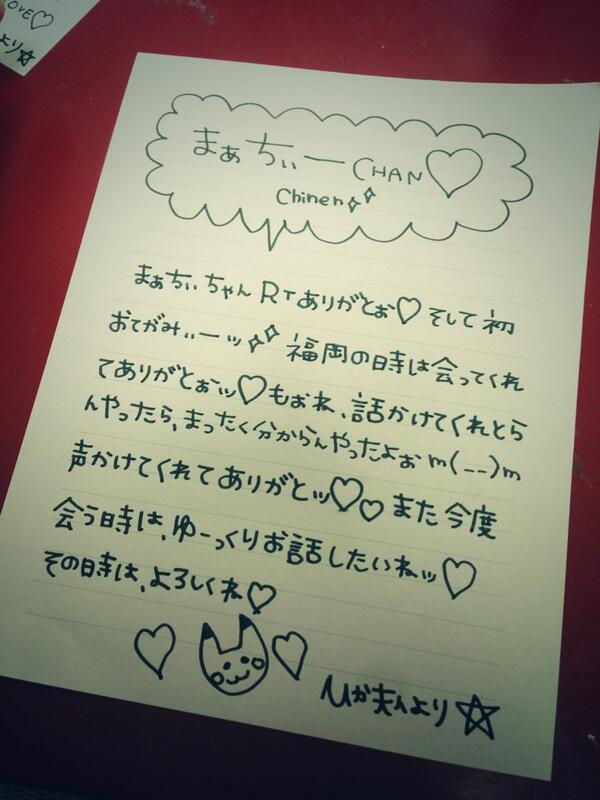 LOVE♡
より☆
まぁちぃーCHAN♡
Chinen
まぁちぃちゃん RTありがとぉ♡ そして初
おてがみぃーッ 福岡の時は会ってくれ
てありがとぉッ♡もぉね、話かけてくれとら
んやったら、まったく分からんやったよぉ m(__)m
声かけてくれてありがとッ♡♡ また今度
会う時は、ゆーっくりお話したいねッ♡
その時は、よろしくね♡
より☆